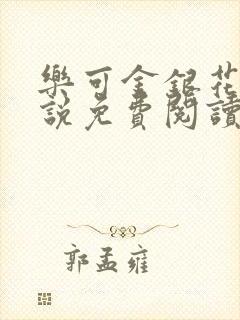 樂可金銀花
說免費閱讀
郭孟雍